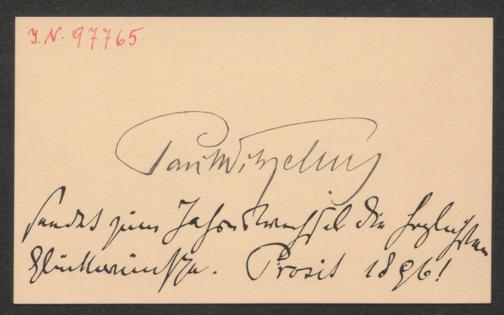 J.N. 97765
Paul Wilzeling
sendet zum Jahreswechsel die herzlichsten
Glückwünsche. Prosit 1896!